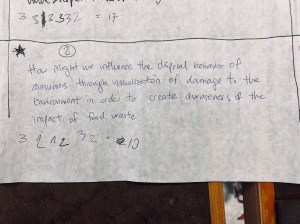 3 3 1 3 3 3 2 = 17
2
How Might we influence the disposal behavior of
through visualization of damage to the
Environment in order to create awareness of the
impact of food waste
3 2 1 2 3 2 = 13